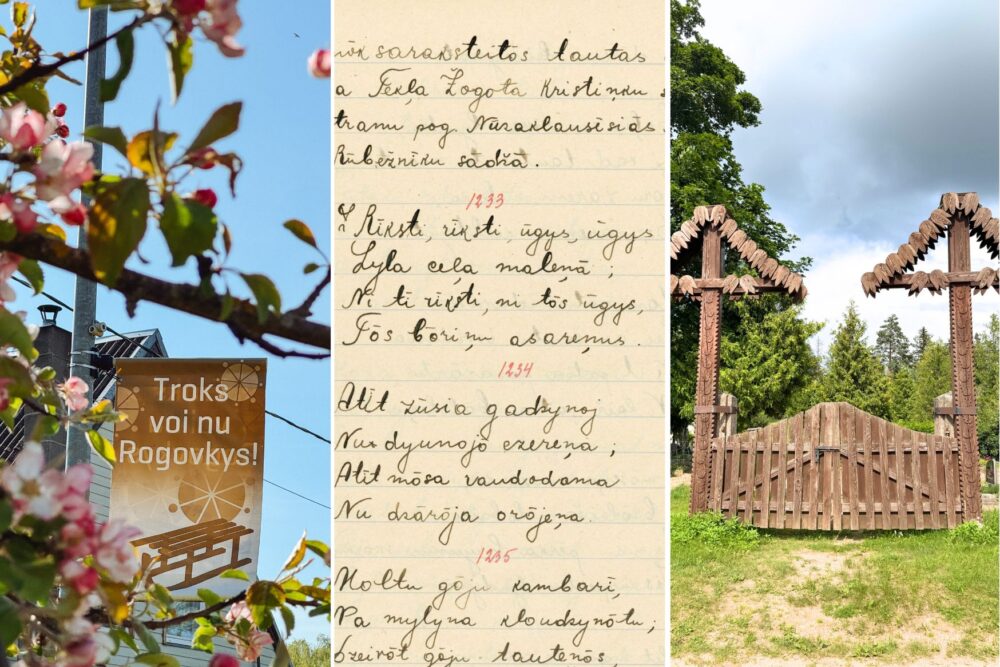 Troks
voi nu
Rogovkys!
saraksteitōs tautas
a Tekļa Žogota Kristiņku
pog. Nūraklausīsiās
Rūbežnīku sādžā.
1233
Rīksti, rīksti, ūgys, ūgys
Lyla ceļa maleņā;
Ni tī rīksti, ni tōs ūgys,
Tōs bōriņu asareņus.
1234
Atīt zūsia gadzynoj
Nu dyunojō ezereņa;
Atīt mōsa raudodama
Nu dzārōja orōjeņa.
1235
Moltu gōju kambarī,
Pa mylyna kloudzynōtu;
gōju tautenōs,